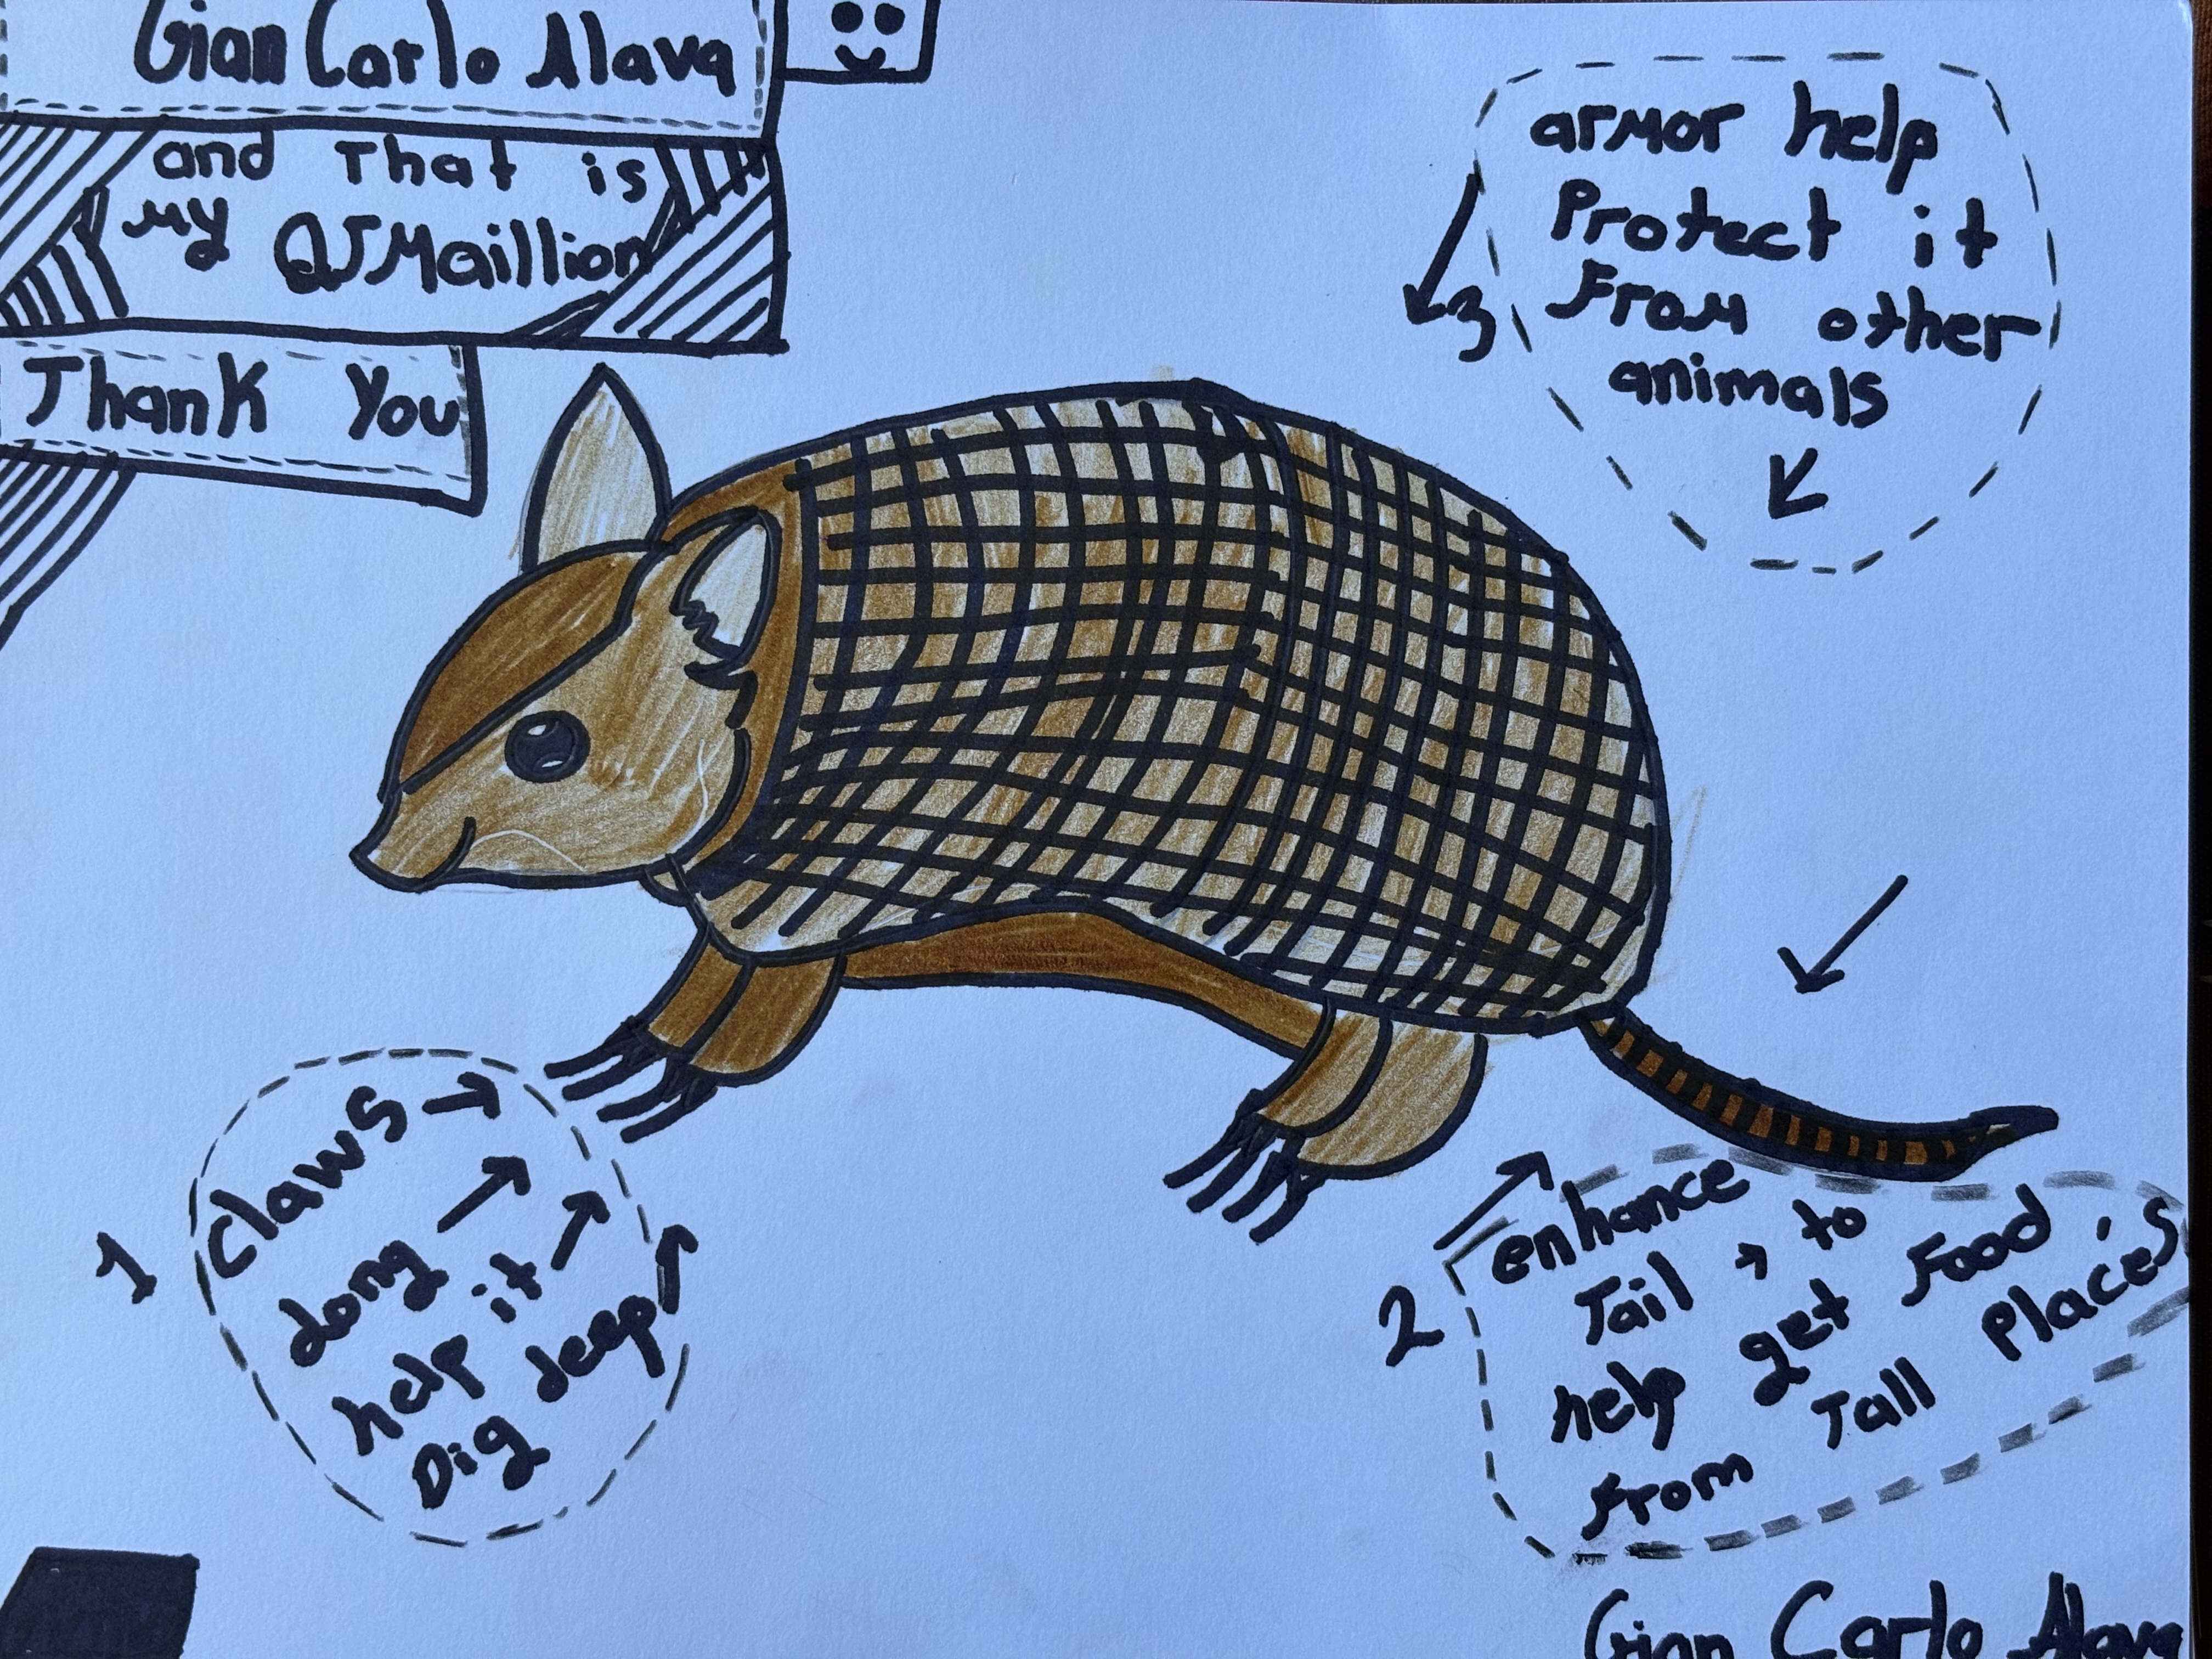 Gian Carlo Alava
and That is
my QJMaillion
Thank You
armor help
Protect it
From other
animals
3
1
Claws
long
help it
Dig deep
2
enhance
Tail to
help get Food
From Tall Places
Gian Carlo Alava